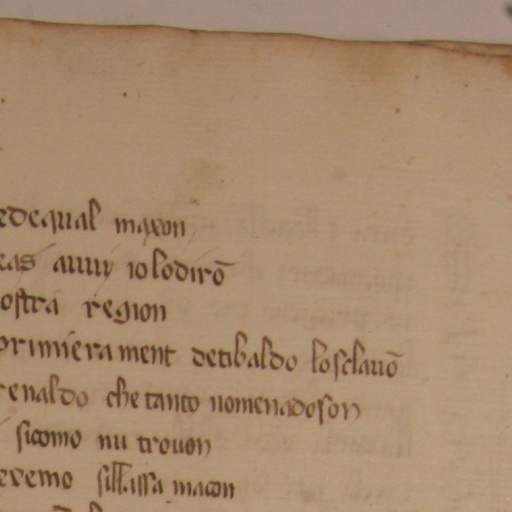 edequal maxon
eas auuy io lodirō
ostra region
primiera ment detibaldo losclauō
renaldo che tanto nomenadoson
sicomo nu trouon
exemo sillassa macon